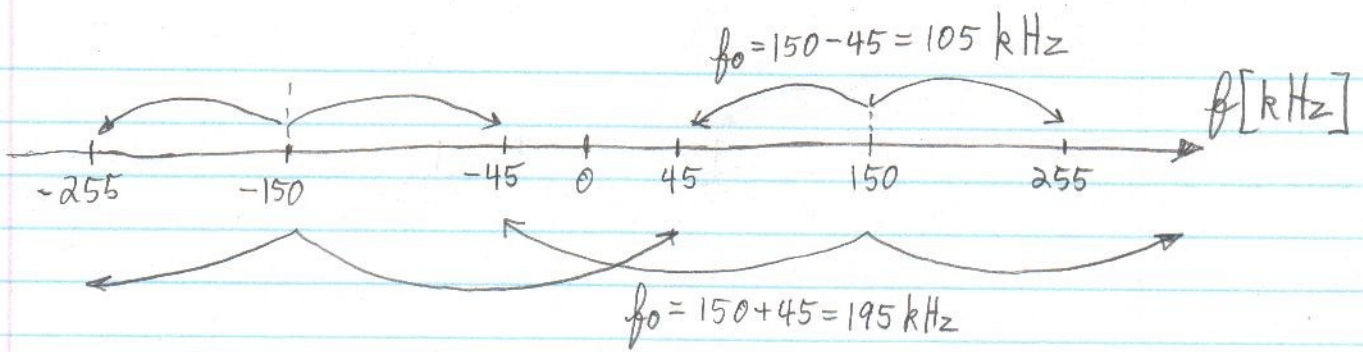 f₀=150-45=105 kHz
f[kHz]
-255 -150 -45 0 45 150 255
f₀=150+45=195kHz